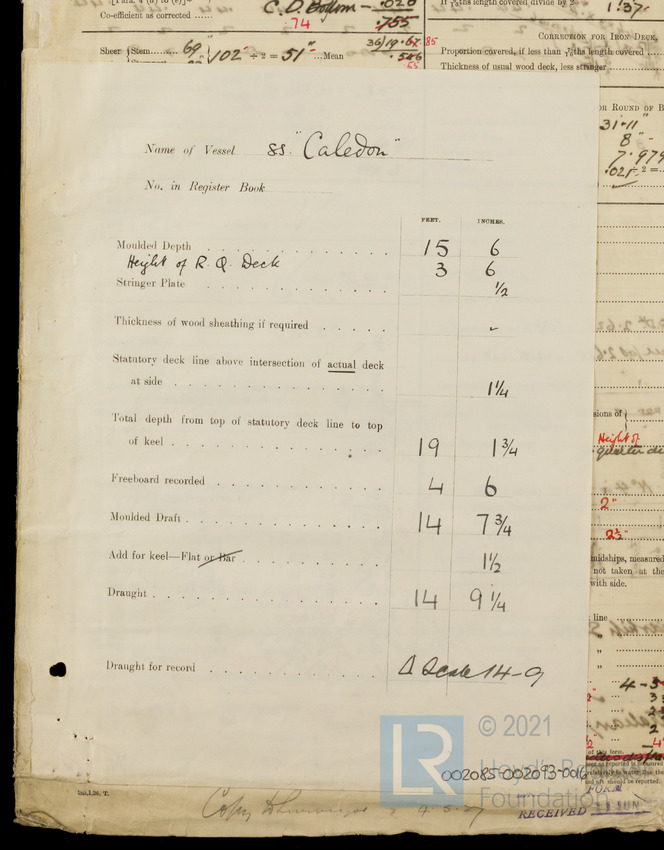 Co-efficient as corrected ......
C. D. Bottom - .020
74 .755
Sheer Stem......... 69 102 ÷ 2 = 51" ...Mean 36/19.67 85
.546
ths length covered divide by 2 1.37
CORRECTION FOR IRON DECK,
Proportion covered, if less than ths length covered
Thickness of usual wood deck, less stringer
OR ROUND OF B
31.11
8"
7.979
.021 ÷ 2 =
Name of Vessel ss "Caledon"
No. in Register Book
FEET. INCHES.
Moulded Depth 15 6
Height of R. Q. Deck 3 6
Stringer Plate ½
Thickness of wood sheathing if required
Statutory deck line above intersection of actual deck
at side 1¼
Total depth from top of statutory deck line to top
of keel 19 1¾
Freeboard recorded 4 6
Moulded Draft 14 7¾
Add for keel—Flat or Bar 1½
Draught 14 9¼
Draught for record Δ Scale 14-9
sions of
Height of
quarter de
2"
2½"
midships, measured
not taken at the
with side.
line
4-5
LR © 2021
Lloyd's Register
Foundation
002085-002093-0016
at this form.
FORM
RECEIVED JUN
Copy 4-5-27